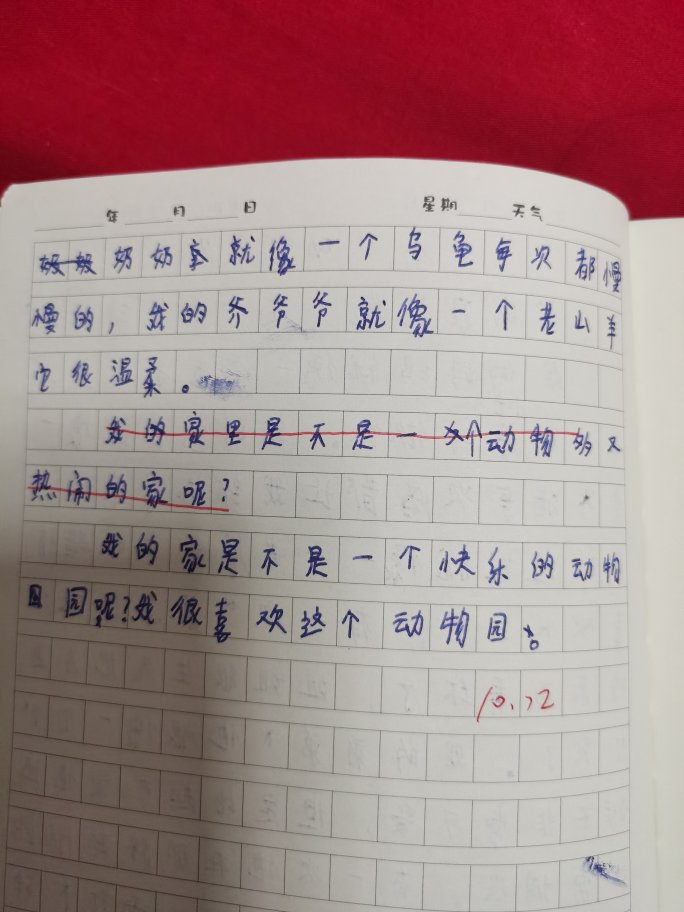 年 月 日 星期 天气
奶奶就像一个乌龟每次都慢
慢的，我的爷爷爷就像一个老山羊
它很温柔。
我的家里是不是一个动物的又
热闹的家呢？
我的家是不是一个快乐的动物
园呢？我很喜欢这个动物园。
10.22